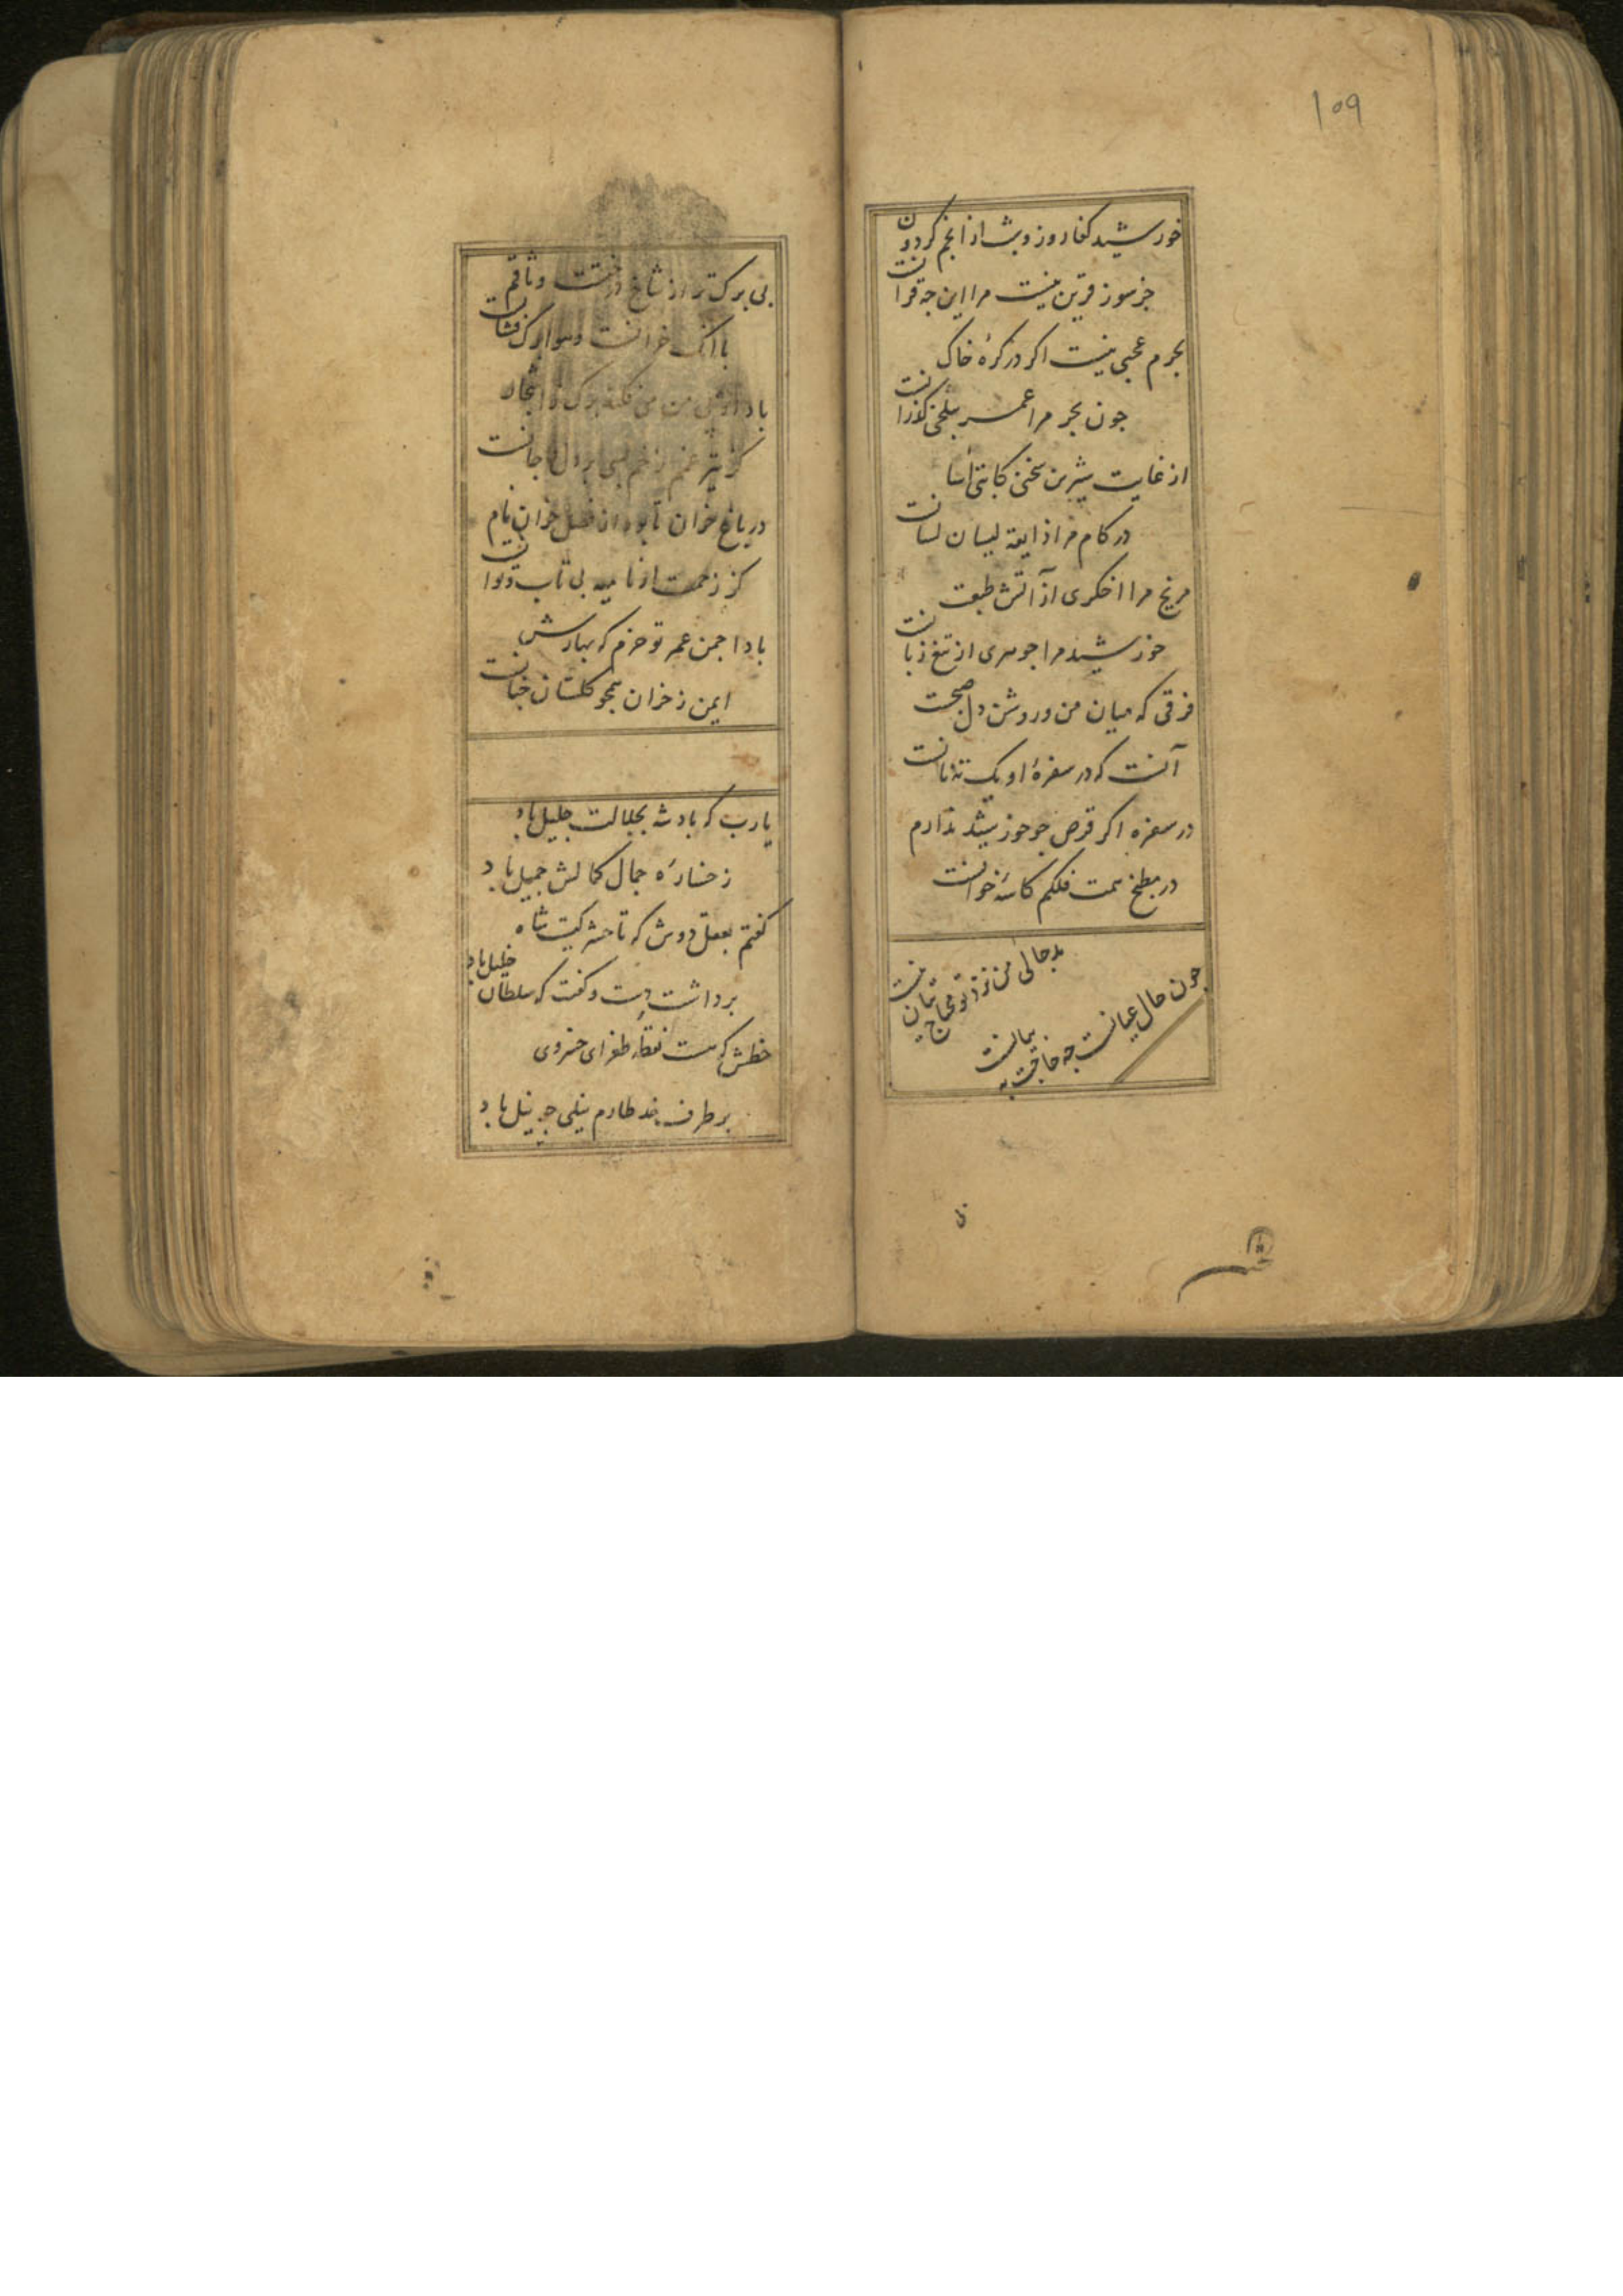 ۱۰۹
خورشید کفا روز و شب از انجم کردون
جز سوز قرین نیست مرا این چه قرانست
بحرم عجبی نیست اکر در کرهٔ خاک
جون بحر مرا عمر بتلخی کذرانست
از غایت شیرین سخنی
در کام مرا ذایقه لیسان لسانست
مریخ مرا اخکری از آتش طبعست
خورشید مرا جوهری از تیغ زبانست
فرقی که میان من و روشن دل صبحست
آنست که در سفرهٔ او یک ته نانست
در سفره اکر قرص جو خورشید ندارم
در مطبخ همت فلکم کاسهٔ خوانست
بدحالی من نزد تو محتاج بیان نیست
جون حال عیانست چه حاجت به بیانست
بی برک تر از شاخ درختست وثاقم
با آنک خزانست و هوا برک فشانست
باد
کز تیر غم زخم بسی بر دل و جانست
در باغ خزان تا بود از فصل خزان نام
کز زحمت او نامیه بی تاب و توانست
بادا جمن عمر تو خرم که بهارش
ایمن ز خزان همجو کلستان جنانست
یارب که بادشه بجلالت جلیل باد
رخسارهٔ جمال کمالش جمیل باد
کفتم بعقل دوش که تا حشر کیست شاه
برداشت دست و کفت که سلطان خلیل باد
خطش که هست نقطه طغرای خسروی
بر طرف هفت طارم نیلی جو نیل باد